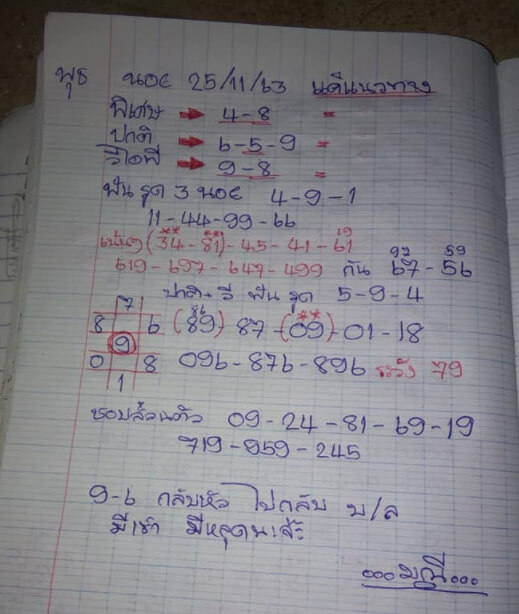 พุธ นอย 25/11/63 แค่แนวทาง
พิเศษ → 4-8 =
ปกติ → 6-5-9 =
วีไอพี → 9-8 =
ฟัน รูด 3 นอย 4-9-1
11-44-99-66
** ** 19
(34-81)-45-41-61
97 59
619-697-647-499 กัน 67-56
ปกติ-วี ฟัน รูด 5-9-4
7
86 **
8 6 (89) 87-(09)-01-18
9
0 8 096-876-896 ระวัง 79
1
ชอบส่วนตัว 09-24-81-69-19
719-959-245
9-6 กลับหัว ไปกลับ บ/ล
มีเข้า มีหลุดนะจ้ะ
...มณี...